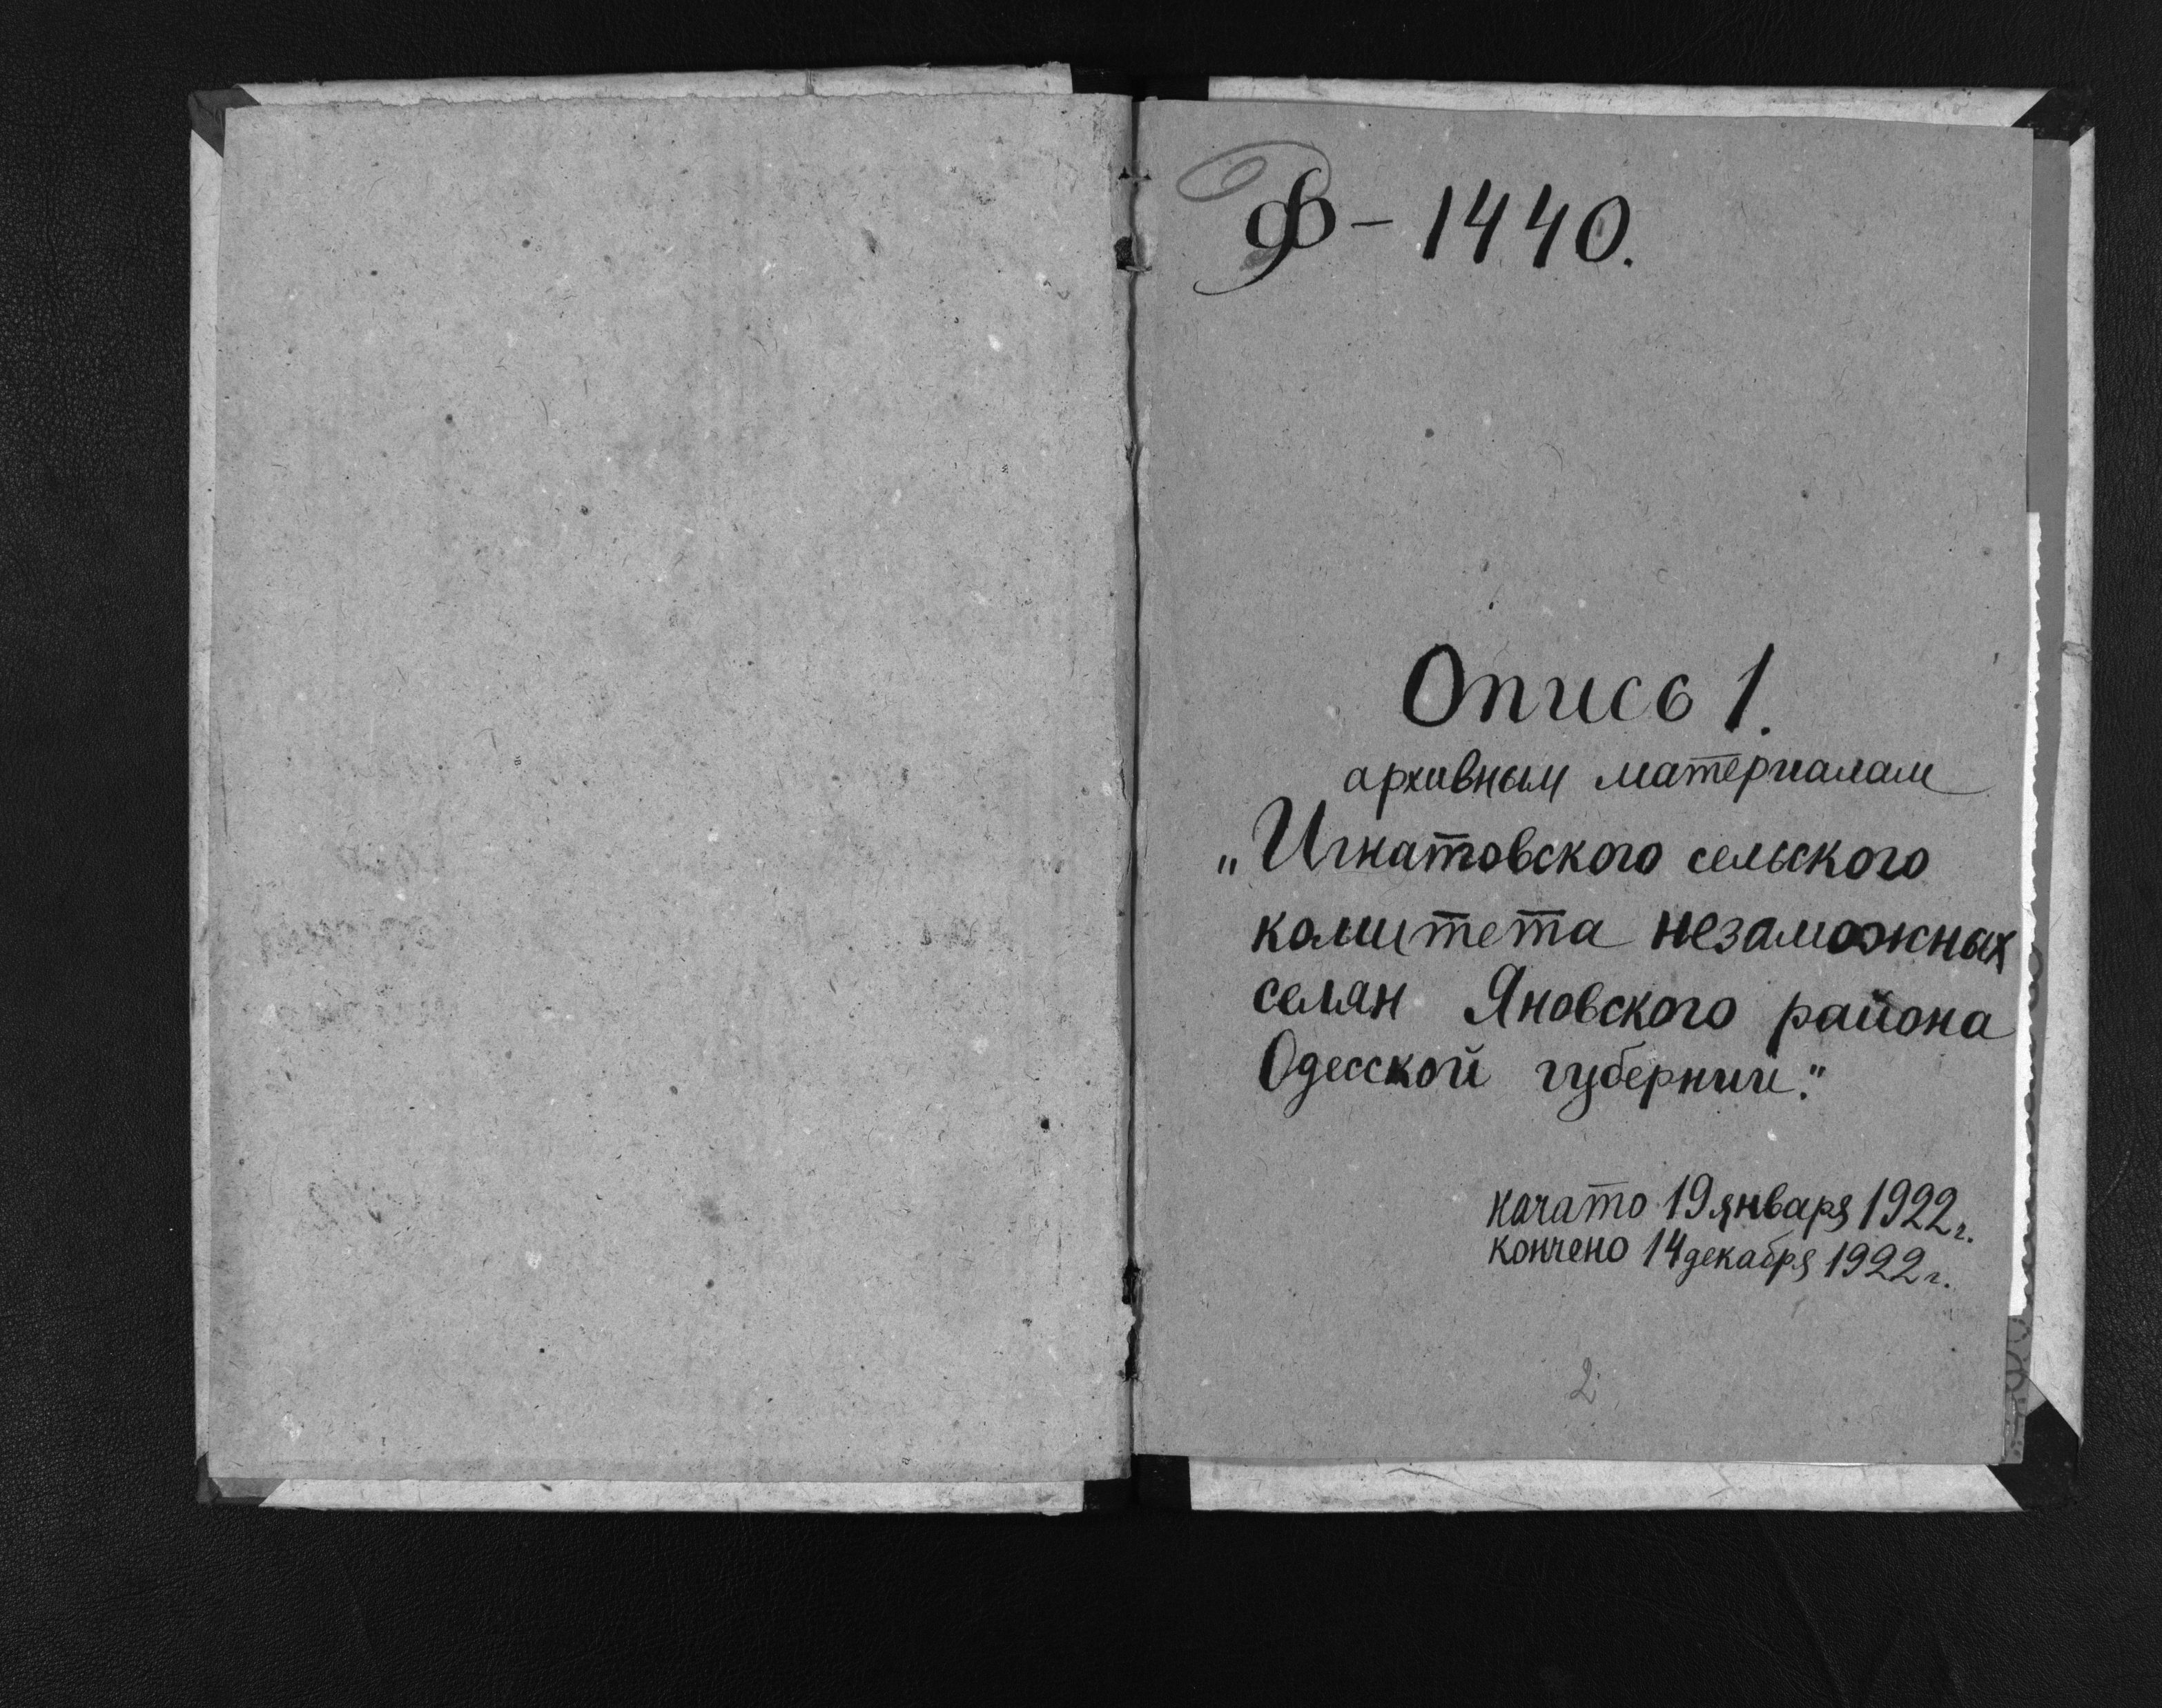 Ф - 1440.
Опись 1.
архивным материалам
„Игнатовского сельского
комитета незаможных
селян Яновского района
Одесской губернии."
начато 19 января 1922 г.
кончено 14 декабря 1922 г.
2